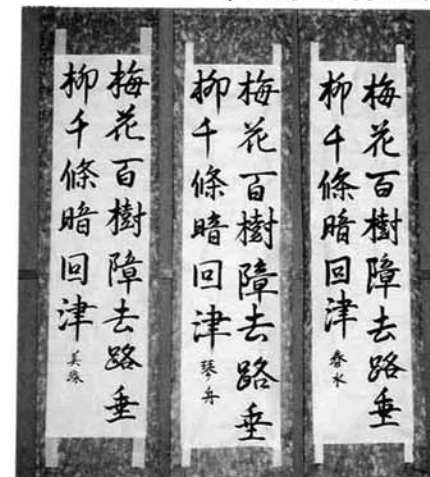 梅花百樹障去路垂
柳千條暗回津
春水
梅花百樹障去路垂
柳千條暗回津
琴舟
梅花百樹障去路垂
柳千條暗回津